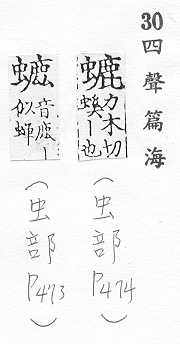 30 四聲篇海
螰 力木切
螇丨也
(虫部 P474)
音鹿丨
似蟬
(虫部 P473)